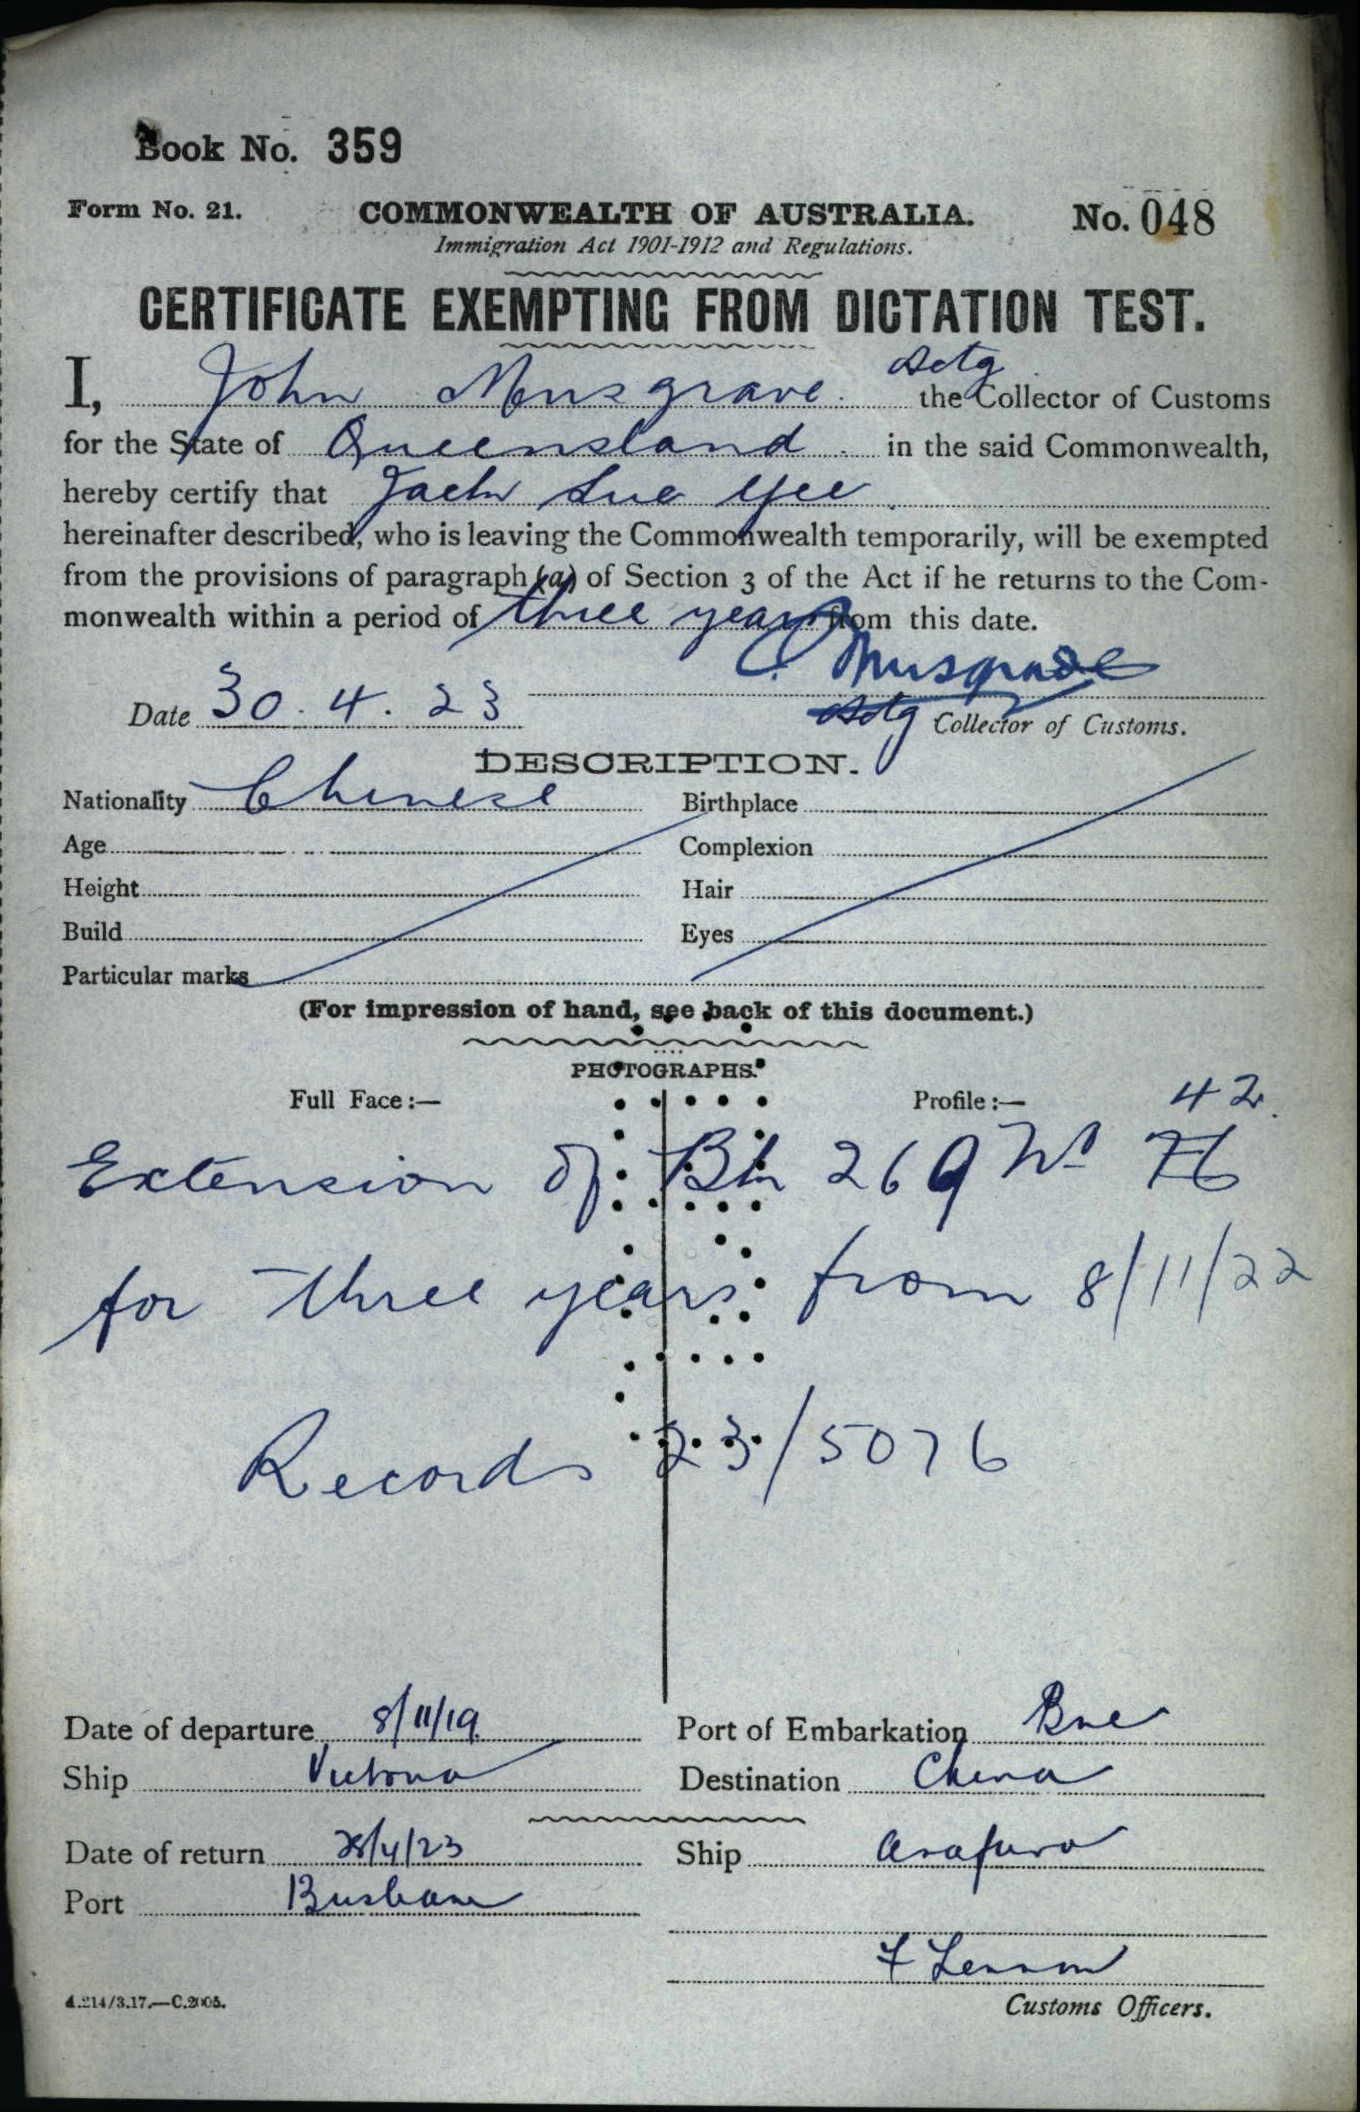 Book No. 359
Form No. 21.
COMMONWEALTH OF AUSTRALIA.
No. 048
Immigration Act 1901-1912 and Regulations.
CERTIFICATE EXEMPTING FROM DICTATION TEST.
Actg
I, John Musgrave the Collector of Customs
for the State of Queensland in the said Commonwealth,
hereby certify that Jack Sue Yee
hereinafter described, who is leaving the Commonwealth temporarily, will be exempted
from the provisions of paragraph (a) of Section 3 of the Act if he returns to the Com-
monwealth within a period of three years from this date.
Musgrave
Date 30.4.23
Actg Collector of Customs.
DESCRIPTION.
Nationality Chinese Birthplace
Age Complexion
Height Hair
Build Eyes
Particular marks
(For impression of hand, see back of this document.)
PHOTOGRAPHS.
Full Face:— Profile:—
42.
Extension of Bk 269 No 76
for three years from 8/11/22
Records 23/5076
Date of departure 8/11/19 Port of Embarkation Bne
Ship Victoria Destination China
Date of return 28/4/23 Ship Arafura
Port Brisbane
F Lennon
A.214/3.17.—C.2005.
Customs Officers.